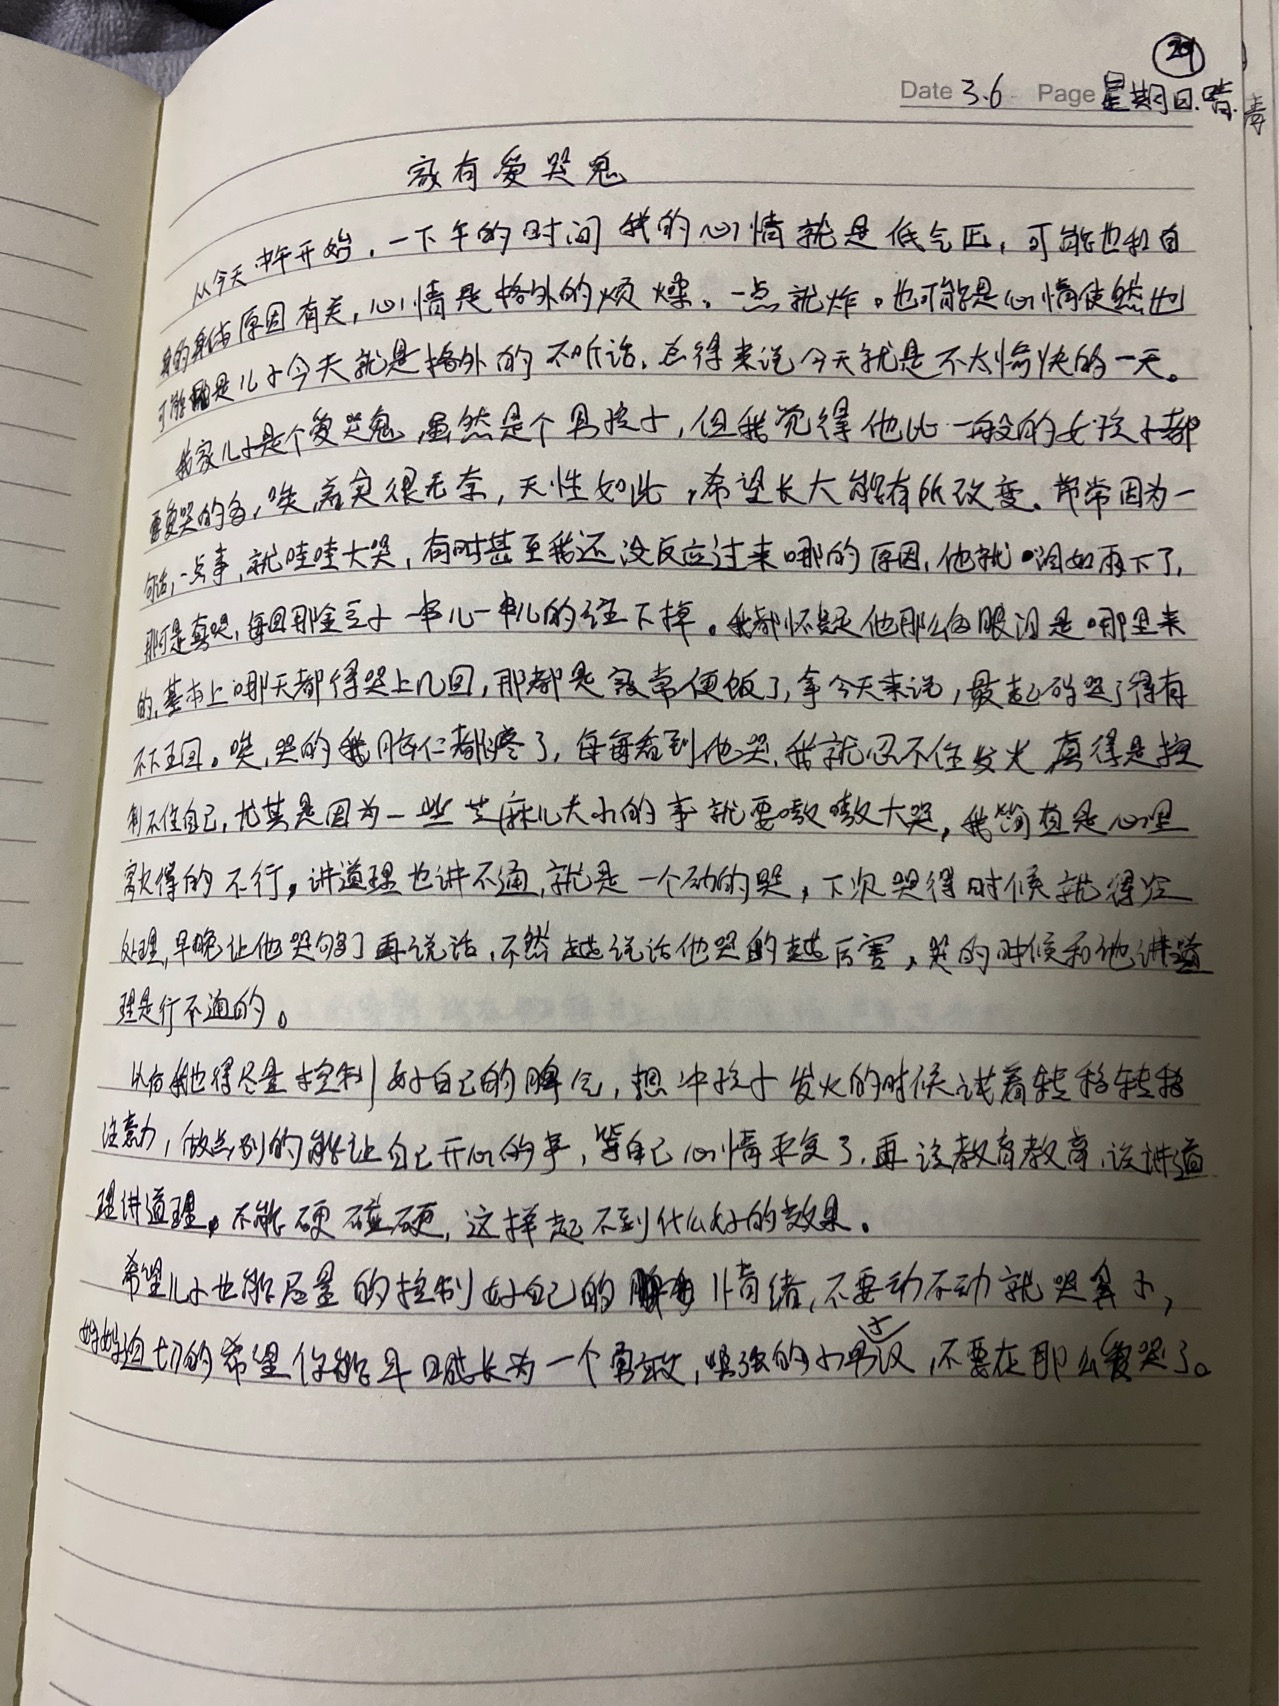 29
Date 3.6 Page 星期日.晴.
家有爱哭鬼
从今天中午开始，一下午的时间我的心情就是低气压，可能也和自
身的身体原因有关，心情是格外的烦燥、一点就炸。也可能是心情使然也
可能是儿子今天就是格外的不听话、总得来说今天就是不太愉快的一天。
我家儿子是个爱哭鬼，虽然是个男孩子，但我觉得他比一般的女孩子都
要爱哭的多，唉，着实很无奈，天性如此，希望长大能有所改变。常常因为一
句话，一点事，就哇哇大哭，有时甚至我还没反应过来哪的原因，他就泪如雨下了，
那可是真哭，每回那金豆子一串儿一串儿的往下掉。我都怀疑他那么多眼泪是哪里来
的，基本上哪天都得哭上几回，那都是家常便饭了，拿今天来说，最起码哭了得有
不下五回。唉，哭的我脑仁都疼了，每每看到他哭，我就忍不住发火，真得是控
制不住自己，尤其是因为一些芝麻儿大小的事就要嗷嗷大哭，我简直是心里
的不行，讲道理也讲不通，就是一个劲的哭，下次哭得时候就得冷
处理，早晚让他哭够了再说话，不然越说话他哭的越厉害，哭的时候和他讲道
理是行不通的。
以后我也得尽量控制好自己的脾气，想冲孩子发火的时候试着转移转移
注意力，做点别的能让自己开心的事，等自己心情平复了，再该教育教育，该讲道
理讲道理，不能硬碰硬，这样起不到什么好的效果。
希望儿子也能尽量的控制好自己的情绪，不要动不动就哭鼻子，
妈妈迫切的希望你能早日成长为一个勇敢，坚强的小男子汉，不要在那么爱哭了。